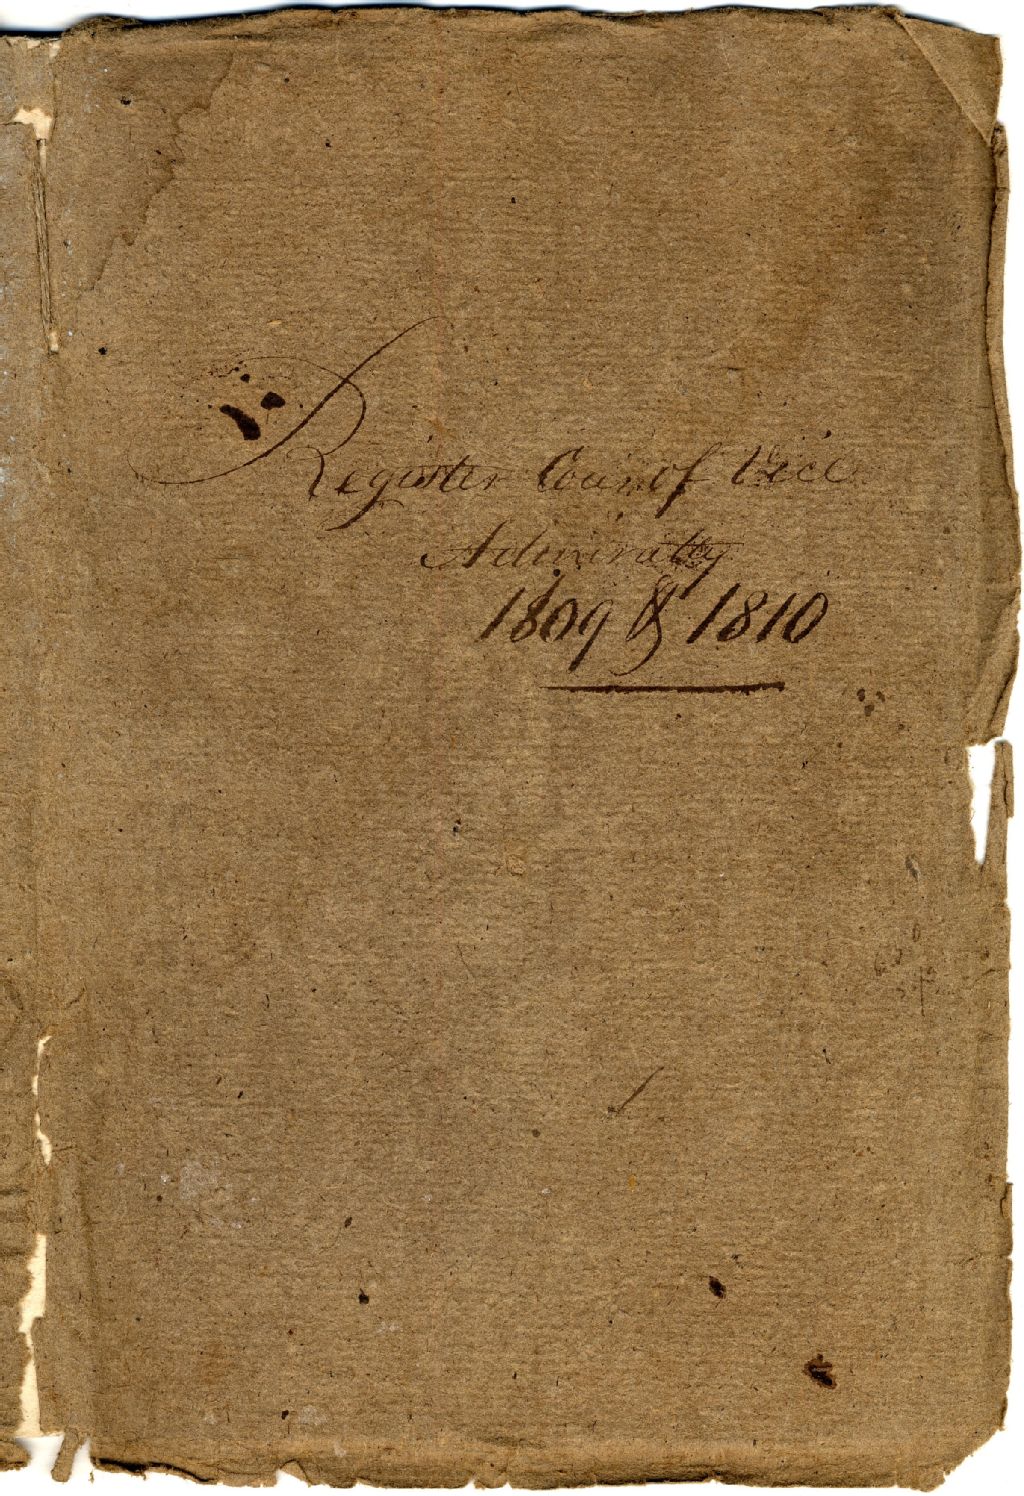 Register Court of Vice
Admiralty
1809 & 1810